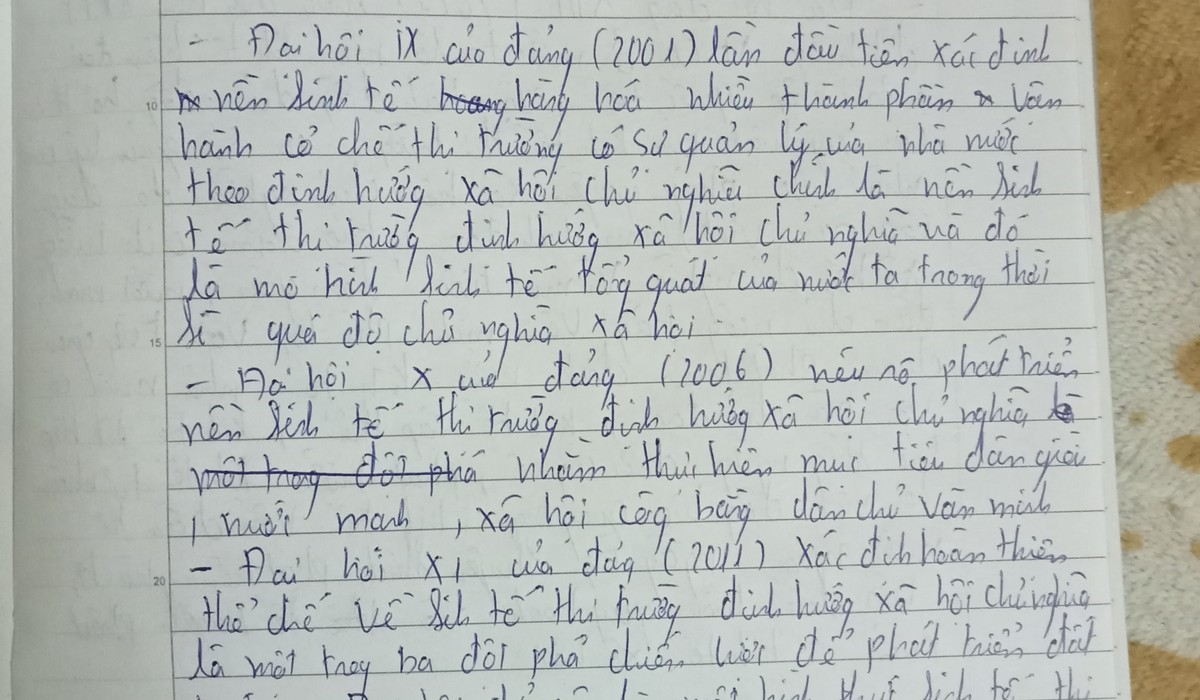 - Đai hôi IX của đảng (2001) lần đầu tiên xác đinh
nền kinh tế hàng hoá nhiều thành phần vân
hành cơ chế thi trường có sự quản lý của nhà nước
theo đinh hướg xã hôi chủ nghĩa chính là nền kinh
tế thi trường đinh hướg xã hôi chủ nghĩa và đó
là mô hình kinh tế tổg quát của nước ta trong thời
kì quá độ chủ nghĩa xã hôi
- Đai hôi X của đảng (2006) nêu rõ phát triển
nền kinh tế thi trường đinh hướg xã hôi chủ nghĩa
nhằm thưc hiên muc tiêu dân giàu
, nước manh, xã hôi côg bằg dân chủ văn minh
- Đai hôi XI của đảg (2011) xác đinh hoàn thiên
thể chế về kinh tế thi trườg đinh hướg xã hôi chủ nghĩa
là môt trog ba đôt phá chiến lươc để phát triển đất